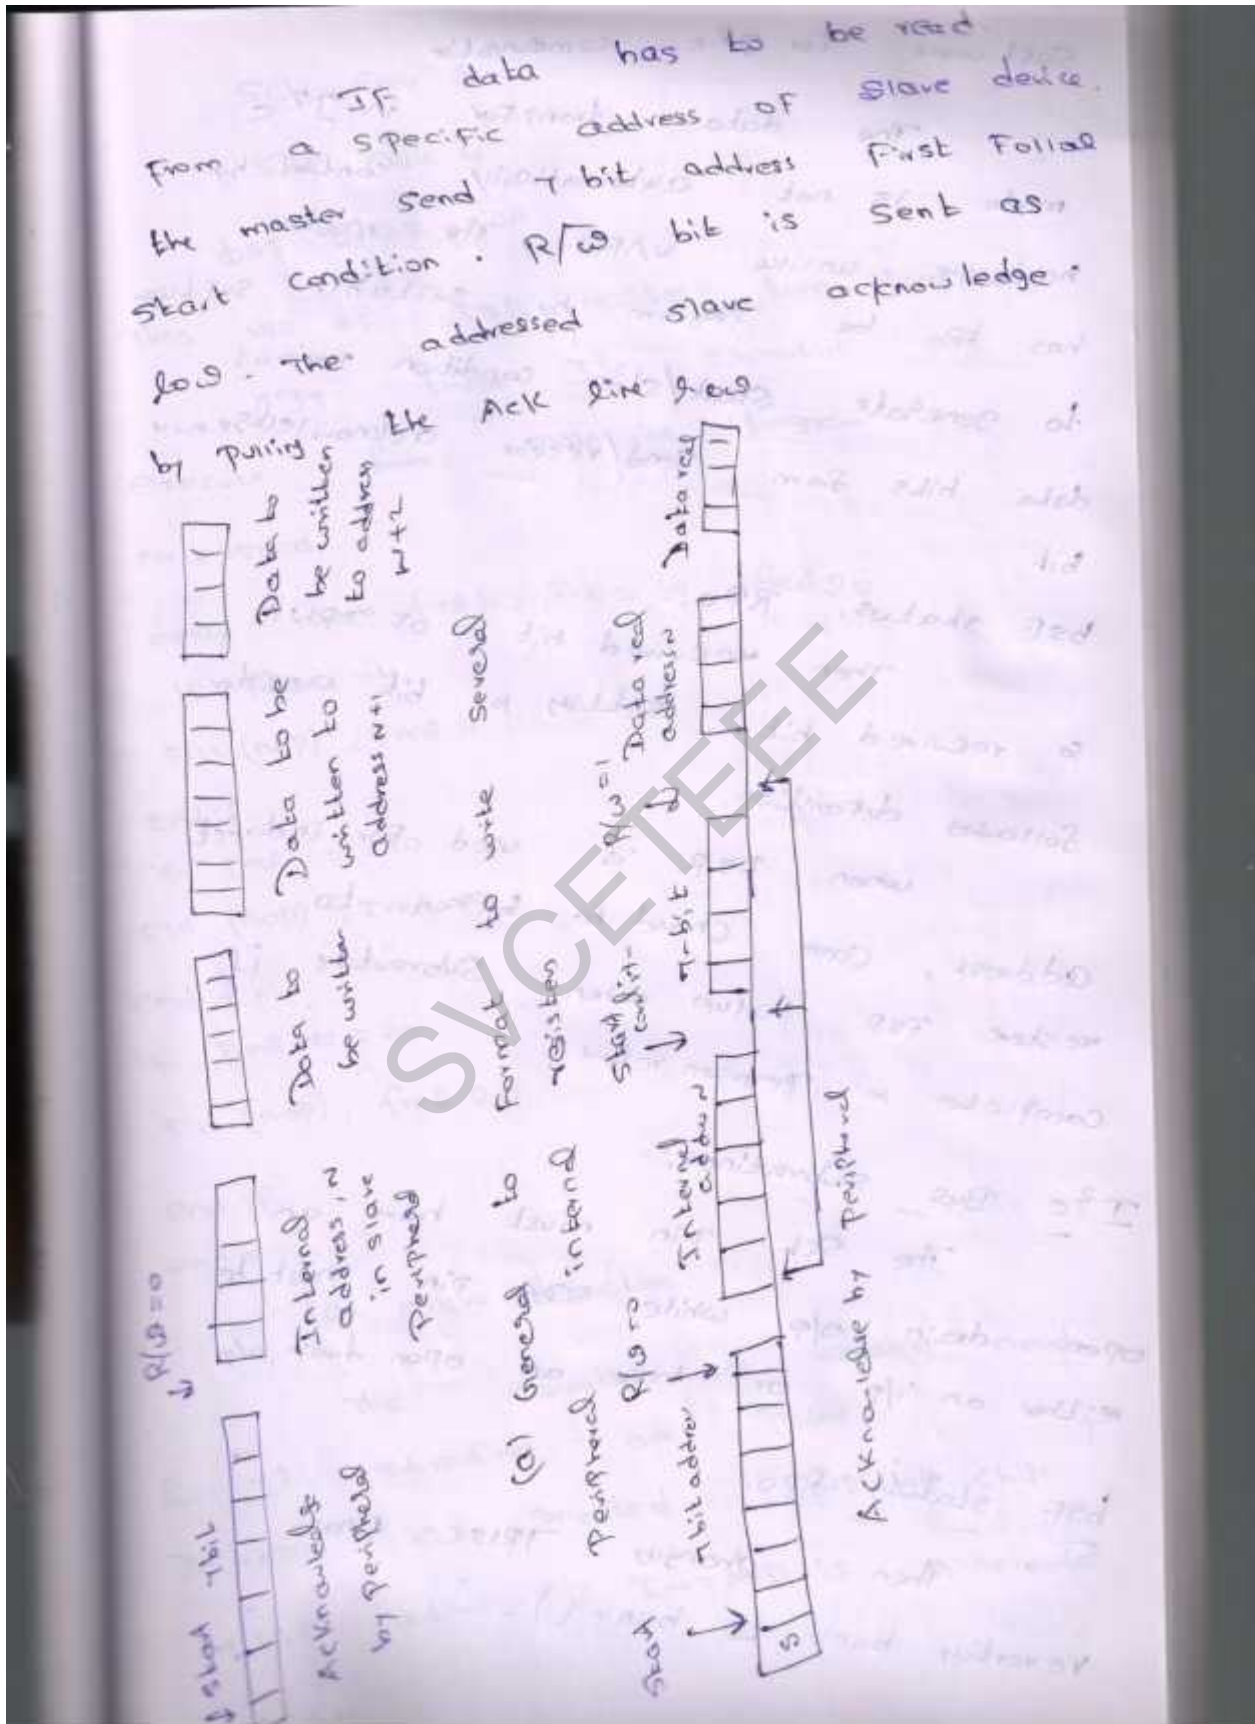 IF data has to be read
From a specific address of slave device.
the master send 7 bit address First Follod
start condition. R/w bit is sent as
low. The addressed slave acknowledge.
by pulling the Ack line low
↓ start 7bit
R/w=0
↓
Acknowledge
by Peripheral
Internal
address, N
in slave
Peripheral
Data to
be written
Data to be
written to
address N+1
Data to
be written
to address
N+2
(a) General Format to write Several
Peripheral internal register
Start 7bit address R/w=0
Internal
address N
Start
condit-
7-bit
R/w=1
Data read
address N
Data read
S
Acknowledge by peripheral
SVCETEEE